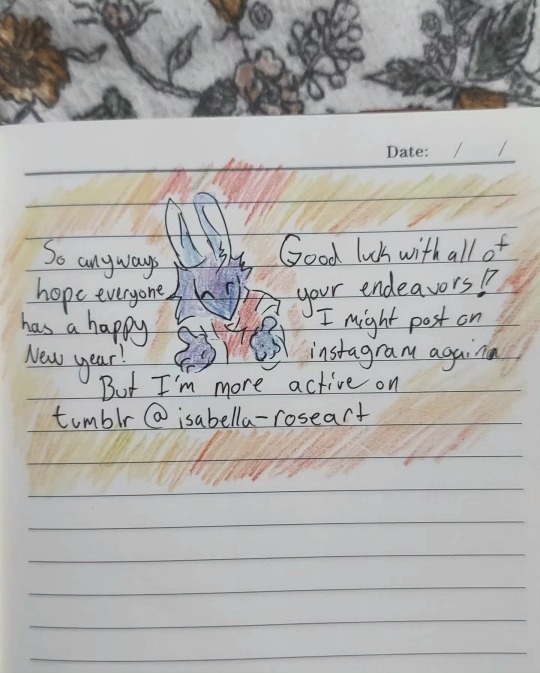 Date: / /
So anyways
hope everyone
has a happy
New year!
Good luck with all of
your endeavors!?
I might post on
instagram again
But I'm more active on
tumblr @ isabella-roseart